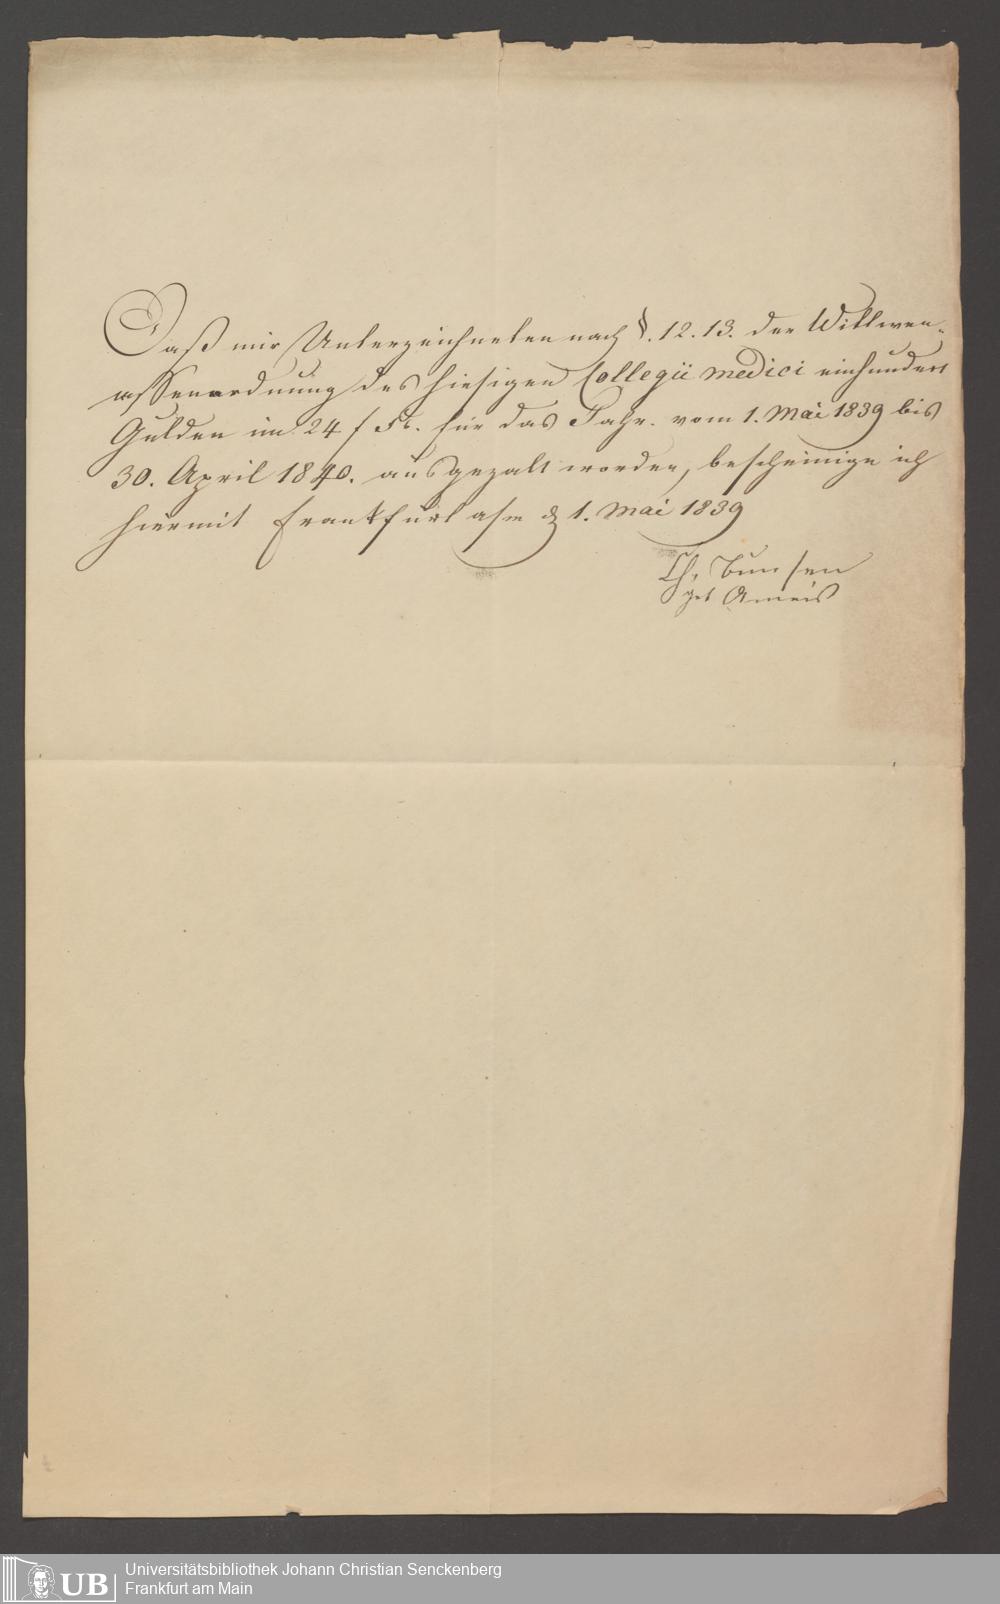 Daß mir Unterzeichneten nach §. 12. 13. der Wittwen-
assenordnung des hiesigen Collegii medici einhundert
Gulden im 24 f Fs. für das Jahr. vom 1. Mai 1839 bis
30. April 1840. ausgezalt worden, bescheinige ich
hiermit Frankfurt a/m d 1. Mai 1839
Ch. Bunsen
geb Ameis
UB
Universitätsbibliothek Johann Christian Senckenberg
Frankfurt am Main